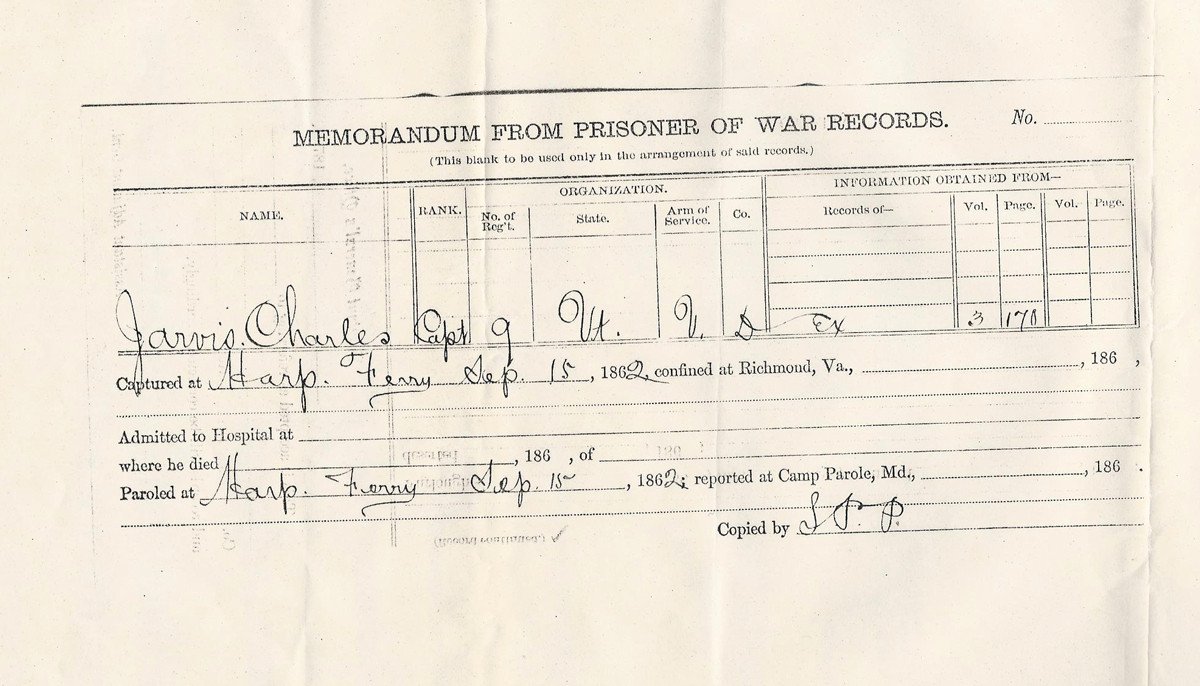 MEMORANDUM FROM PRISONER OF WAR RECORDS. No.
(This blank to be used only in the arrangement of said records.)
NAME. RANK. ORGANIZATION. INFORMATION OBTAINED FROM—
No. of Reg't. State. Arm of Service. Co. Records of— Vol. Page. Vol. Page.
Jarvis. Charles Capt 9 Vt. V. D Ex 3 170
Captured at Harp. Ferry Sep. 15, 1862, confined at Richmond, Va., , 186 ,
Admitted to Hospital at
where he died , 186 , of
Paroled at Harp. Ferry Sep. 15, 1862; reported at Camp Parole, Md., , 186 .
Copied by S. P. P.
(Record continued.)